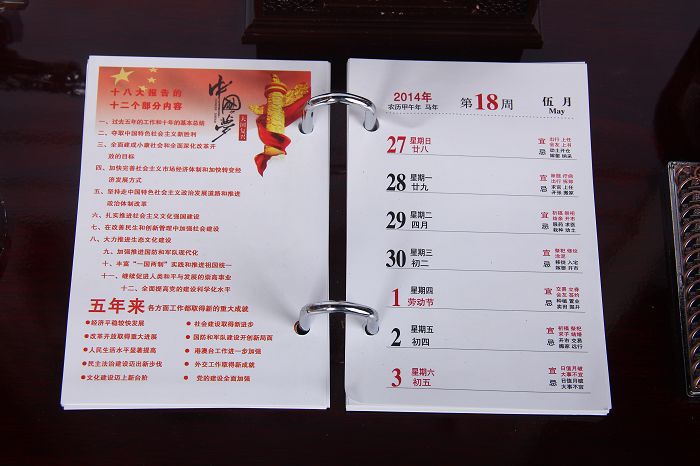 十八大报告的
十二个部分内容
中国梦
一、过去五年的工作和十年的基本总结
二、夺取中国特色社会主义新胜利
三、全面建成小康社会和全面深化改革开
放的目标
四、加快完善社会主义市场经济体制和加快转变经
济发展方式
五、坚持走中国特色社会主义政治发展道路和推进
政治体制改革
六、扎实推进社会主义文化强国建设
七、在改善民生和创新管理中加强社会建设
八、大力推进生态文化建设
九、加强推进国防和军队现代化
十、丰富“一国两制”实践和推进祖国统一
十一、继续促进人类和平与发展的崇高事业
十二、全面提高党的建设科学化水平
五年来 各方面工作都取得新的重大成就
●经济平稳较快发展 ●社会建设取得新进步
●改革开放取得重大进展 ●国防和军队建设开创新局面
●人民生活水平显著提高 ●港澳台工作进一步加强
●民主法治建设迈出新步伐 ●外交工作取得新成就
●文化建设迈上新台阶 ●党的建设全面加强
2014年 第18周 伍月
农历甲午年 马年 May
27 星期日 宜 出行 上任
廿八 会友 上书
忌 动土 开仓
嫁娶 纳采
28 星期一 宜
廿九 出行
忌 求官 上任
开张 搬家
29 星期二 宜 祈福 祭祀
四月 结亲 开市
忌 服药 求医
栽种 动土
30 星期三 宜 祭祀 修坟
初二
忌 移徙 入宅
嫁娶 开市
1 星期四 宜 交易 立券
劳动节 会友 签约
忌 种植 置业
卖田 掘井
2 星期五 宜 祈福 祭祀
初四 求子 结婚
忌 开市 交易
搬家 远行
3 星期六 宜 日值月破
初五 大事不宜
忌 日值月破
大事不宜